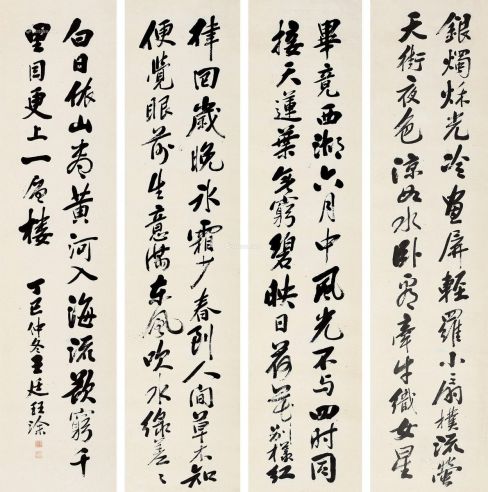 銀燭秋光冷畫屏輕羅小扇撲流螢
天街夜色涼如水臥看牽牛織女星
畢竟西湖六月中風光不与四时同
接天蓮葉無窮碧映日荷花别樣红
律回歲晚冰霜少春到人間草木知
便覺眼前生意滿東風吹水綠差〻
白日依山盡黄河入海流欲窮千
里目更上一層樓
丁巳仲冬王廷